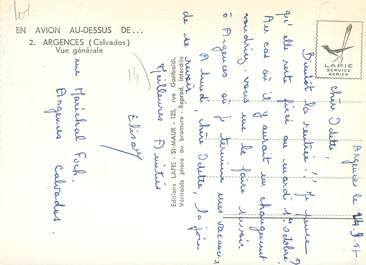 EN AVION AU-DESSUS DE...
2. ARGENCES (Calvados)
Vue générale
LAPIE
SERVICE
AERIEN
Argences le 24.9.57
chère Odette,
Bientôt la rentrée!! Je pense
qu'elle reste fixée au mardi 1er octobre?
Au cas où il y aurait un changement
voudriez-vous me le faire savoir
à Argences où je termine mes vacances,
A lundi, chère Odette la joie
de te revoir
Meilleures Amitiés
Elisa
rue Maréchal Foch.
Argences Calvados.
Editions LAPIE - St-MAUR - 125, rue Garibaldi.
Véritable photo au bromure - Reprod. interdite
14